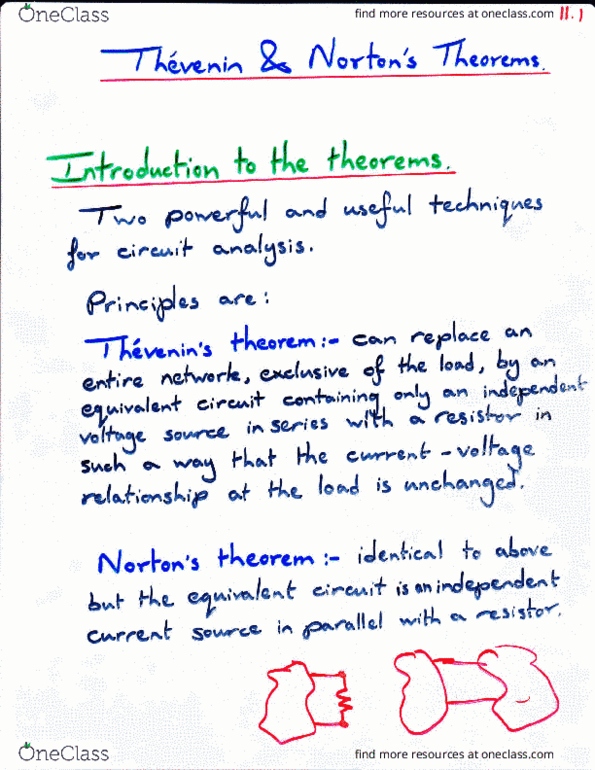 OneClass
find more resources at oneclass.com
11.1
Thévenin & Norton's Theorems.
Introduction to the theorems.
Two powerful and useful techniques
for circuit analysis.
Principles are:
Thévenin's theorem:- can replace an
entire network, exclusive of the load, by an
equivalent circuit containing only an independent
voltage source in series with a resistor in
such a way that the current-voltage
relationship at the load is unchanged.
Norton's theorem:- identical to above
but the equivalent circuit is an independent
current source in parallel with a resistor.
OneClass
find more resources at oneclass.com